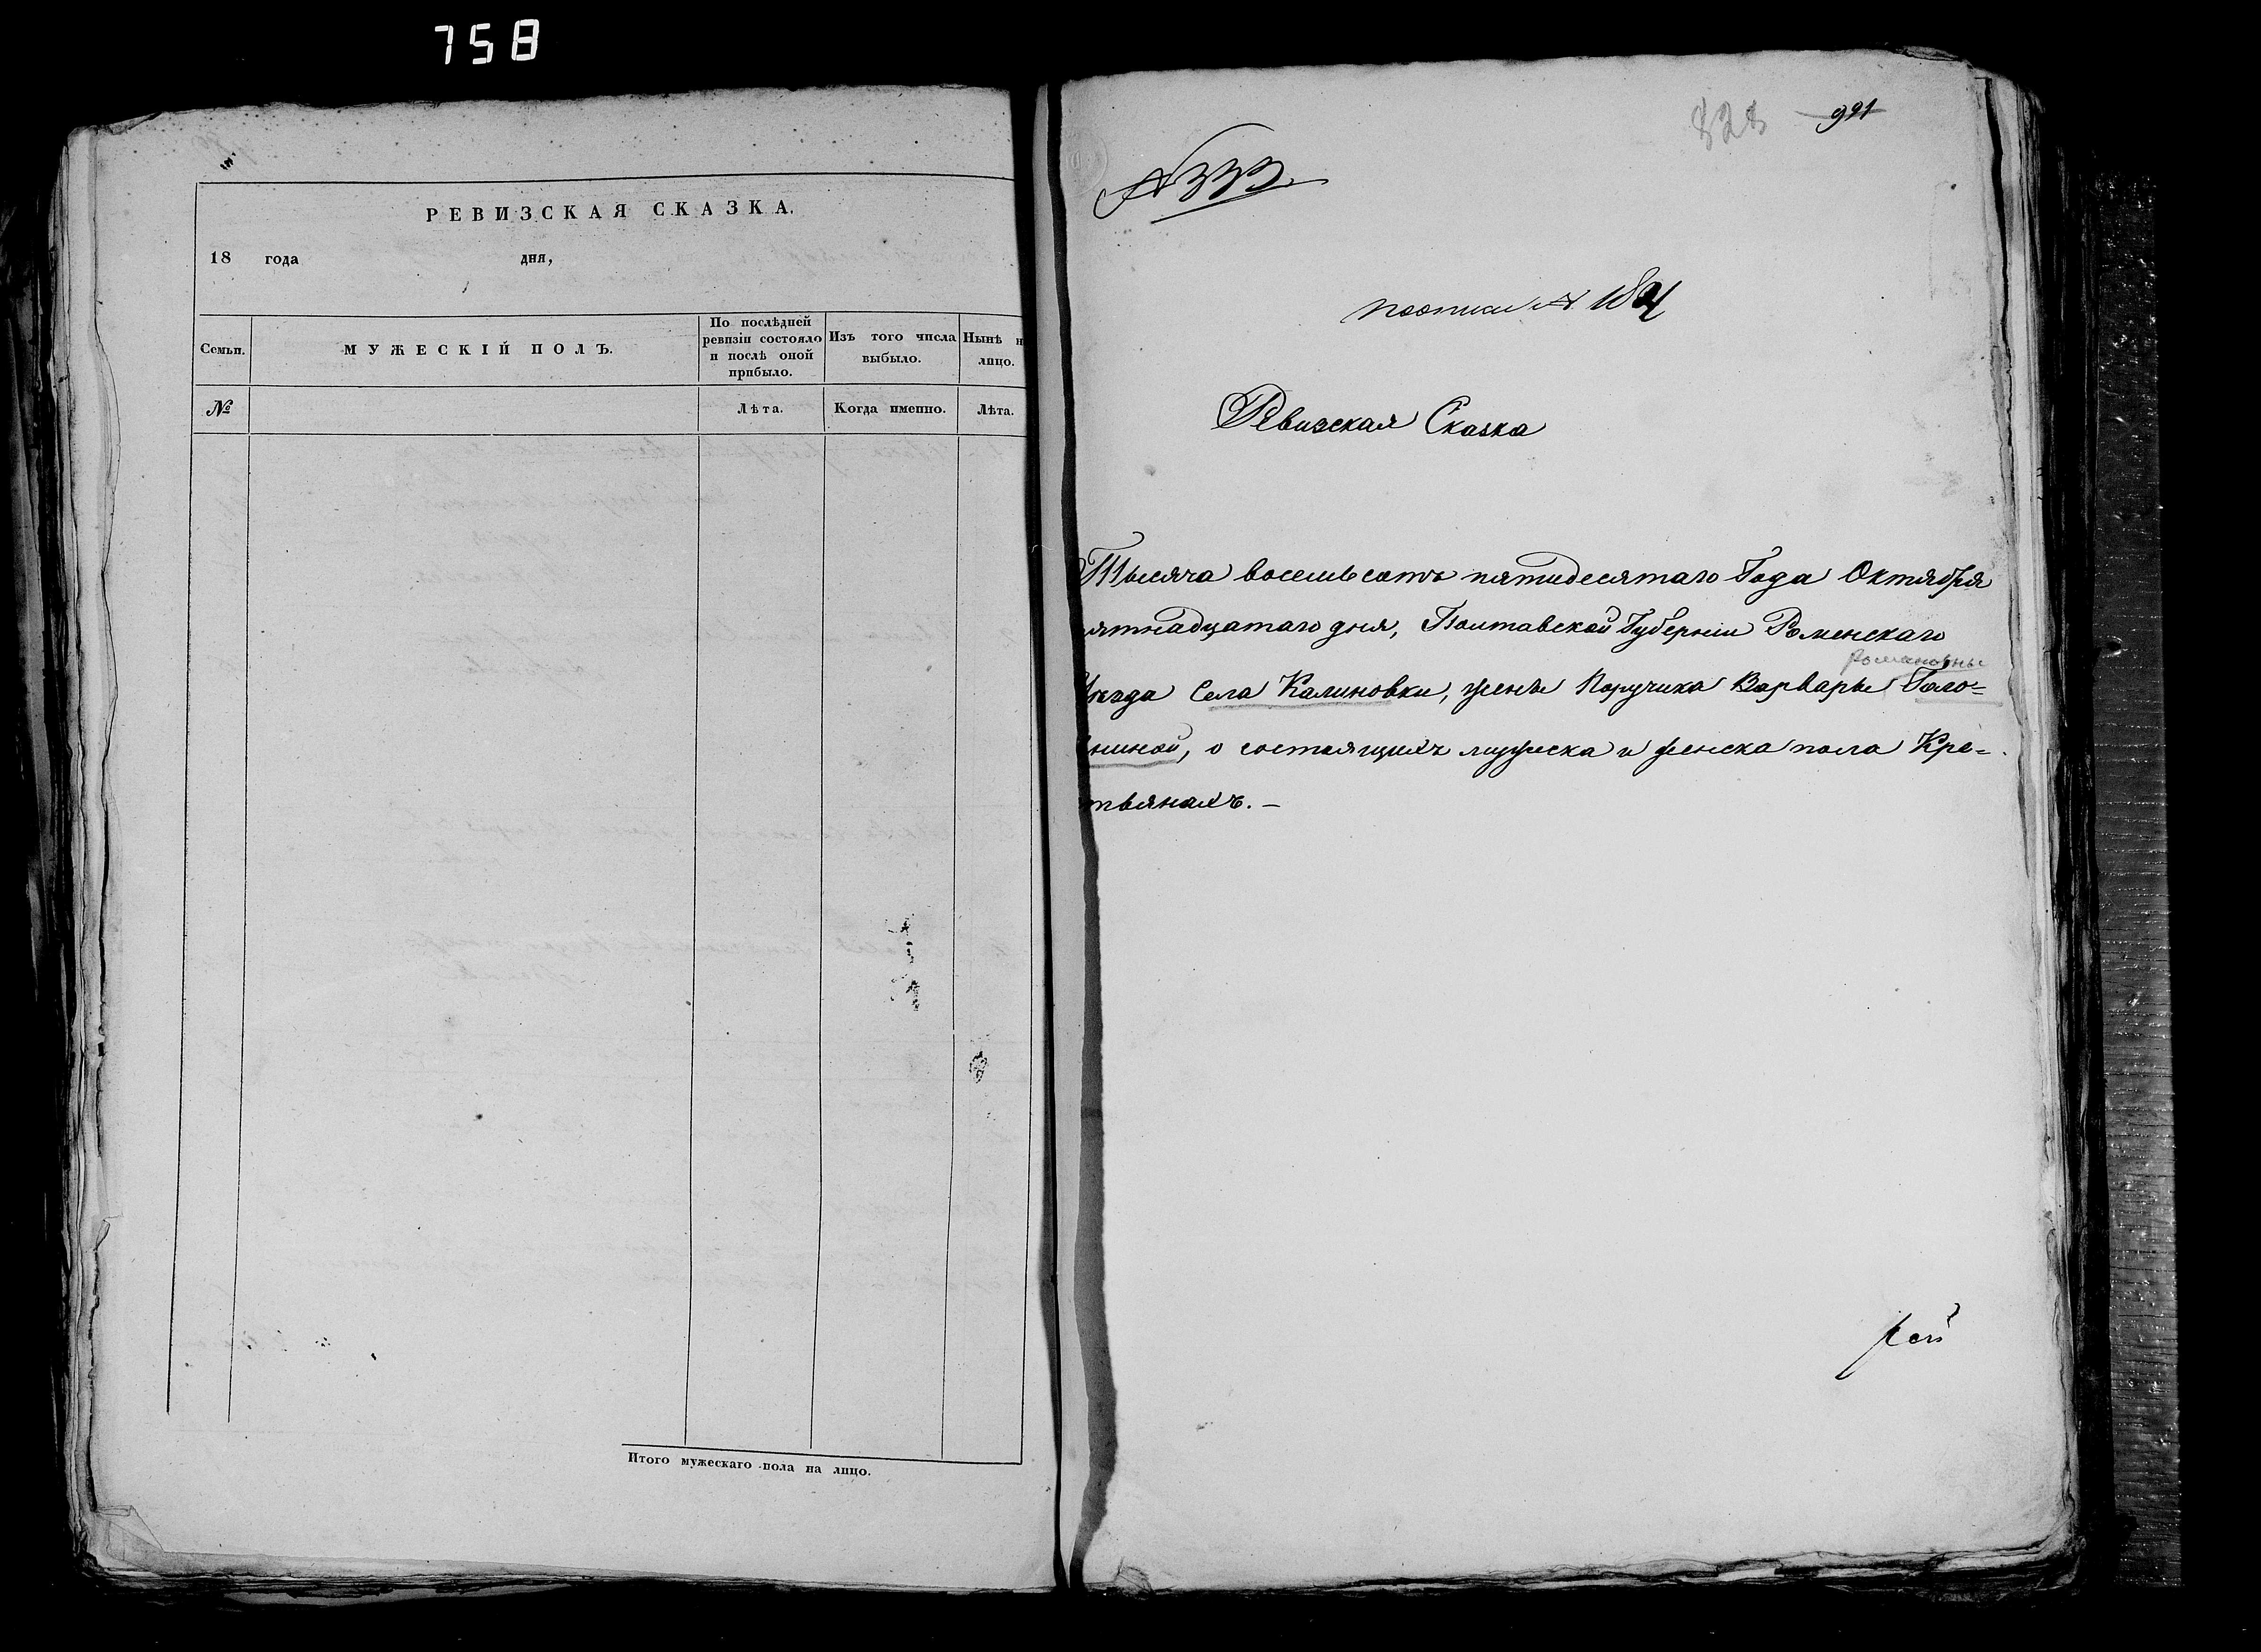 758
РЕВИЗСКАЯ СКАЗКА.
18 года дня,
Семьи.
МУЖЕСКІЙ ПОЛЪ.
По послѣдней ревизіи состояло и послѣ оной прибыло.
Изъ того числа выбыло.
Нынѣ н
лицо.
№
Лѣта.
Когда именно.
Лѣта.
Итого мужескаго пола на лицо.
828 991
№ 333.
№ 184
Ревизская Сказка
Тысяча восемьсотъ пятидесятаго Года Октября
ятнадцатаго дня, Полтавской Губерніи Роменскаго
Романовны
уѣзда Села Калиновки, жены Поручика Варвары Голо=
ниной, о состоящихъ мужеска и женска пола Кре=
тьянахъ. –